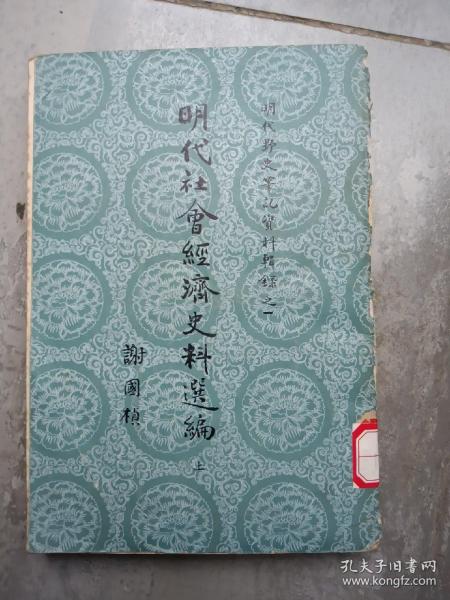 明代野史筆記資料輯錄之一
明代社會經濟史料選編
上
謝國楨
孔夫子旧书网
www.kongfz.com